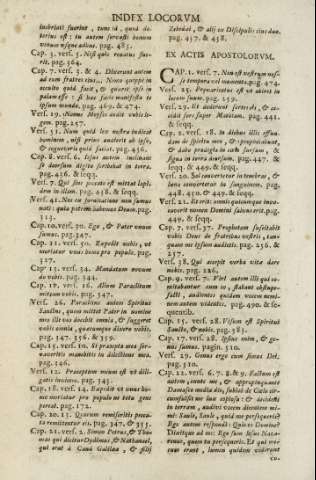 INDEX LOCORVM
inebriati fuerint, tunc id, quod deterius est: tu autem servasti bonum vinum usque adhuc. pag. 485.
Cap. 3. vers. 5. Nisi quis renatus fuerit. pag. 364.
Cap. 7. vers. 3. & 4. Dixerunt autem ad eum fratres eius.
in occulto quid facit, & quærit ipse in palam esse: si hæc facis manifesta te ipsum mundo. pag. 469. & 474.
Vers. 19. Nonne Moyses dedit vobis legem. pag. 227.
Vers. 51. Num quid lex nostra iudicat hominem, nisi prius audierit ab ipso, & cognoverit quid faciat. pag. 456.
Cap. 8. vers. 6. Iesus autem inclinans se deorsum digito scribebat in terra. pag. 436. & seqq.
Vers. 7. Qui sine peccato est mittat lapidem in illam. pag. 438. & seqq.
Vers. 41. Nos ex fornicatione non sumus nati: unum patrem habemus Deum. pag. 323.
Cap. 10. vers. 30. Ego, & Pater unum sumus. pag. 347.
Cap. 11. vers. 50. Expedit vobis, ut moriatur unus homo pro populo. pag. 327.
Cap. 13. vers. 34. Mandatum novum do vobis. pag. 344.
Cap. 14. vers. 16. Alium Paraclitum mittam vobis. pag. 347.
Vers. 26. Paraclitus autem Spiritus Sanctus, quem mittet Pater in nomine meo ille vos docebit omnia, & suggeret vobis omnia, quæcumque dixero vobis. pag. 347. 356. & 359.
Cap. 15. vers. 10. Si præcepta mea servaveritis manebitis in dilectione mea. pag. 346.
Vers. 12. Præceptum meum est ut diligatis invicem. pag. 345.
Cap. 18. vers. 14. Expedit ut unus homo moriatur pro populo ne tota gens pereat. pag. 172.
Cap. 20. vers. 23. Quorum remiseritis peccata remittuntur eis. pag. 347. & 355.
Cap. 21. vers. 2. Simon Petrus, & Thomas qui dicitur Dydimus, & Nathanael, qui erat à Cana Galileæ, & filij
Zebedæi, & alij ex Discipulis eius duo. pag. 457. & 458.
EX ACTIS APOSTOLORVM.
CAP. 1. vers. 7. Non est vestrum nosse tempora vel momenta. pag. 474.
Vers. 25. Prævaricatus est ut abiret in locum suum. pag. 359.
Vers. 26. Et dederunt sortes eis, & cecidit sors super Matthiam. pag. 441. & seqq.
Cap. 2. vers. 18. In diebus illis effundam de Spiritu meo, & prophetabunt, & dabo prodigia in cælo sursum, & signa in terra deorsum. pag. 447. & seqq. & 449. & seqq.
Vers. 20. Sol convertetur in tenebras, & luna convertetur in sanguinem. pag. 448. 450. & 449. & seqq.
Vers. 21. Et erit: omnis quicumque invocaverit nomen Domini salvus erit. pag. 449. & seqq.
Cap. 7. vers. 37. Prophetam suscitabit vobis Deus de fratribus vestris, tanquam me ipsum audietis. pag. 256. & 257.
Vers. 38. Qui accepit verba vitæ dare nobis. pag. 226.
Cap. 9. vers. 7. Viri autem illi qui comitabantur cum eo, stabant stupefacti, audientes quidem vocem neminem autem videntes. pag. 490. & sequentib.
Cap. 15. vers. 28. Visum est Spiritui Sancto, & nobis. pag. 383.
Cap. 17. vers. 28. Ipsius enim, & genus sumus. pagin. 510.
Vers. 29. Genus ergo cum simus Dei. pag. 510.
Cap. 22. vers. 6. 7. 8. & 9. Factum est autem, eunte me, & appropinquante Damasco media die, subitò de Cælo circumfulsit me lux copiosa: & decidens in terram, audivi vocem dicentem mihi: Saule, Saule, quid me persequeris? Ego autem respondi: Quis es Domine? Dixitque ad me: Ego sum Iesus Nazarenus, quem tu persequeris. Et qui mecum erant, lumen quidem viderunt